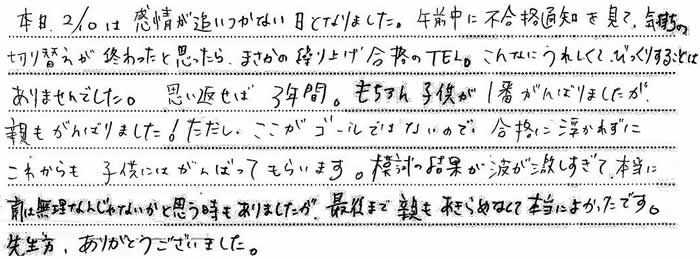 本日、2/10は 感情が追いつかない日となりました。午前中に不合格通知を見て、気持ちの
切り替えが終わったと思ったら、まさかの繰り上げ合格のTEL。こんなにうれしくて、びっくりすることは
ありませんでした。 思い返せば 3年間。もちろん子供が1番がんばりましたが、
親もがんばりました!ただし、ここがゴールではないので、合格に浮かれずに
これからも 子供にはがんばってもらいます。模試の結果が波が激しすぎて、本当に
前は無理なんじゃないかと思う時もありましたが、最後まで親もあきらめなくて本当によかったです。
先生方、ありがとうございました。